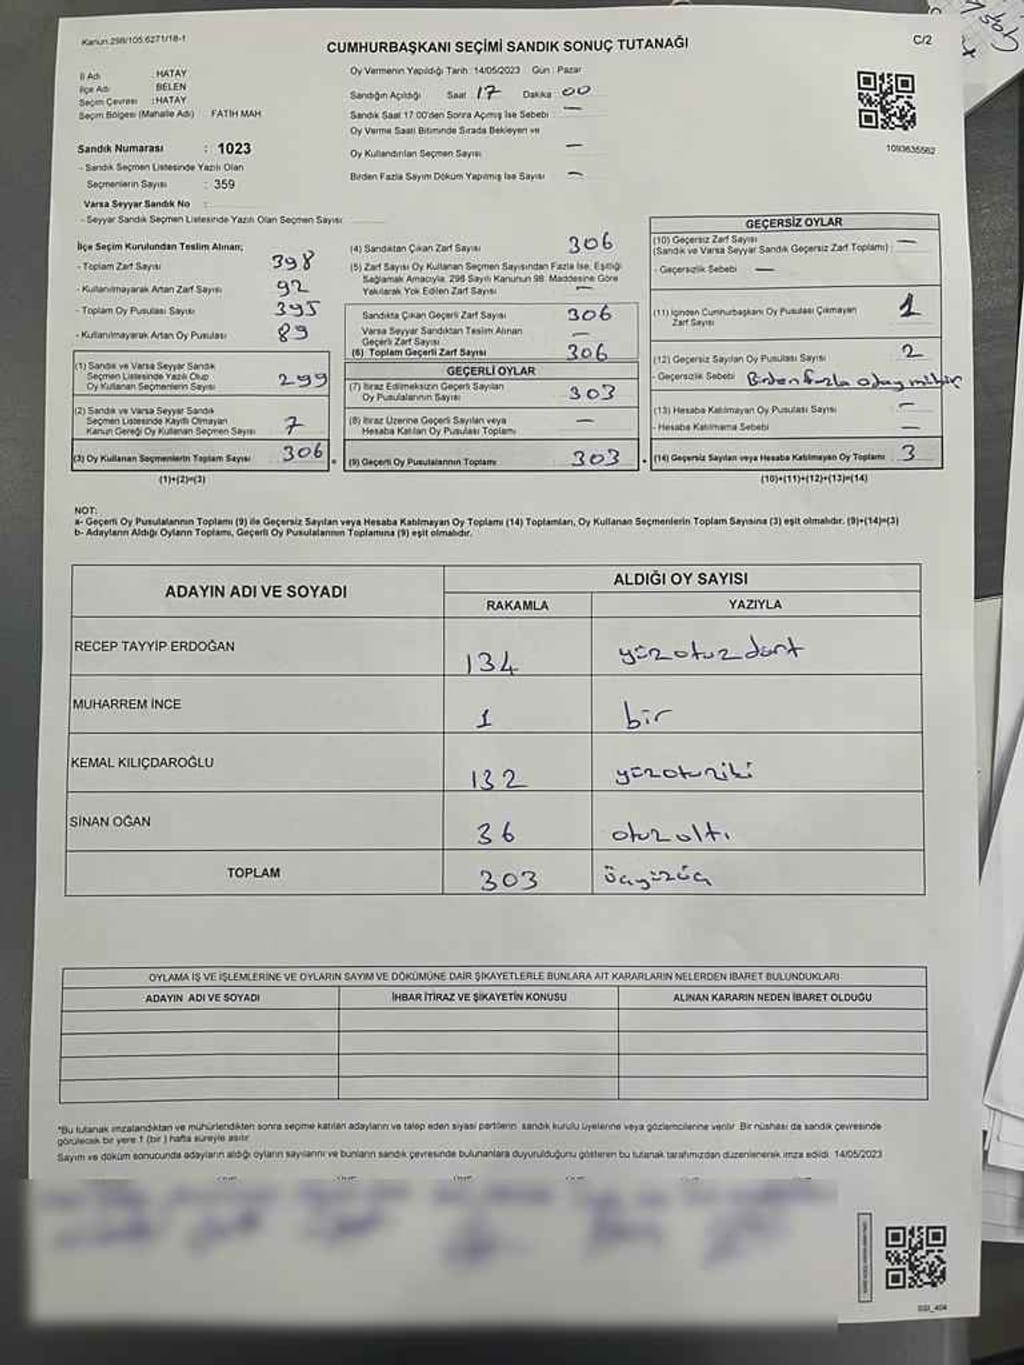 Kanun:298/105.6271/18-1
CUMHURBAŞKANI SEÇİMİ SANDIK SONUÇ TUTANAĞI
C/2
İl Adı : HATAY
İlçe Adı : BELEN
Seçim Çevresi : HATAY
Seçim Bölgesi (Mahalle Adı) : FATİH MAH.
Sandık Numarası : 1023
- Sandık Seçmen Listesinde Yazılı Olan
Seçmenlerin Sayısı : 359
Varsa Seyyar Sandık No :
- Seyyar Sandık Seçmen Listesinde Yazılı Olan Seçmen Sayısı:
Oy Vermenin Yapıldığı Tarih : 14/05/2023 Gün : Pazar
Sandığın Açıldığı Saat : 17 Dakika : 00
Sandık Saat 17.00'den Sonra Açımış İse Sebebi : —
Oy Verme Saati Bitiminde Sırada Bekleyen ve
Oy Kullandırılan Seçmen Sayısı —
Birden Fazla Sayım Döküm Yapılmış İse Sayısı —
1093635562
İlçe Seçim Kurulundan Teslim Alınan;
- Toplam Zarf Sayısı 398
- Kullanılmayarak Artan Zarf Sayısı 92
- Toplam Oy Pusulası Sayısı 395
- Kullanılmayarak Artan Oy Pusulası 89
(1) Sandık ve Varsa Seyyar Sandık
Seçmen Listesinde Yazılı Olup
Oy Kullanan Seçmenlerin Sayısı 299
(2) Sandık ve Varsa Seyyar Sandık
Seçmen Listesinde Kayıtlı Olmayan
Kanun Gereği Oy Kullanan Seçmen Sayısı 7
(3) Oy Kullanan Seçmenlerin Toplam Sayısı 306
(1)+(2)=(3)
(4) Sandıktan Çıkan Zarf Sayısı 306
(5) Zarf Sayısı Oy Kullanan Seçmen Sayısından Fazla İse, Eşitliği
Sağlamak Amacıyla, 298 Sayılı Kanunun 98. Maddesine Göre
Yakılarak Yok Edilen Zarf Sayısı —
Sandıkta Çıkan Geçerli Zarf Sayısı 306
Varsa Seyyar Sandıktan Teslim Alınan
Geçerli Zarf Sayısı —
(6) Toplam Geçerli Zarf Sayısı 306
GEÇERLİ OYLAR
(7) İtiraz Edilmeksizin Geçerli Sayılan
Oy Pusulalarının Sayısı 303
(8) İtiraz Üzerine Geçerli Sayılan veya
Hesaba Katılan Oy Pusulası Toplamı —
(9) Geçerli Oy Pusulalarının Toplamı 303
GEÇERSİZ OYLAR
(10) Geçersiz Zarf Sayısı —
(Sandık ve Varsa Seyyar Sandık Geçersiz Zarf Toplamı)
- Geçersizlik Sebebi —
(11) İçinden Cumhurbaşkanı Oy Pusulası Çıkmayan
Zarf Sayısı 1
(12) Geçersiz Sayılan Oy Pusulası Sayısı 2
- Geçersizlik Sebebi Birden fazla
(13) Hesaba Katılmayan Oy Pusulası Sayısı —
- Hesaba Katılmama Sebebi —
(14) Geçersiz Sayılan veya Hesaba Katılmayan Oy Toplamı 3
(10)+(11)+(12)+(13)=(14)
NOT:
a- Geçerli Oy Pusulalarının Toplamı (9) ile Geçersiz Sayılan veya Hesaba Katılmayan Oy Toplamı (14) Toplamları, Oy Kullanan Seçmenlerin Toplam Sayısına (3) eşit olmalıdır. (9)+(14)=(3)
b- Adayların Aldığı Oyların Toplamı, Geçerli Oy Pusulalarının Toplamına (9) eşit olmalıdır.
ADAYIN ADI VE SOYADI ALDIĞI OY SAYISI
RAKAMLA YAZIYLA
RECEP TAYYİP ERDOĞAN 134 yüzotuzdört
MUHARREM İNCE 1 bir
KEMAL KILIÇDAROĞLU 132 yüzotuziki
SİNAN OĞAN 36 otuzaltı
TOPLAM 303 üçyüzüç
OYLAMA İŞ VE İŞLEMLERİNE VE OYLARIN SAYIM VE DÖKÜMÜNE DAİR ŞİKAYETLERLE BUNLARA AİT KARARLARIN NELERDEN İBARET BULUNDUKLARI
ADAYIN ADI VE SOYADI İHBAR İTİRAZ VE ŞİKAYETİN KONUSU ALINAN KARARIN NEDEN İBARET OLDUĞU
*Bu tutanak imzalandıktan ve mühürlendikten sonra seçime katılan adayların ve talep eden siyasi partilerin, sandık kurulu üyelerine veya gözlemcilerine verilir. Bir nüshası da sandık çevresinde
görülecek bir yere 1 (bir ) hafta süreyle asılır.
Sayım ve döküm sonucunda adayların aldığı oyların sayılarını ve bunların sandık çevresinde bulunanlara duyurulduğunu gösteren bu tutanak tarafımızdan düzenlenerek imza edildi. 14/05/2023